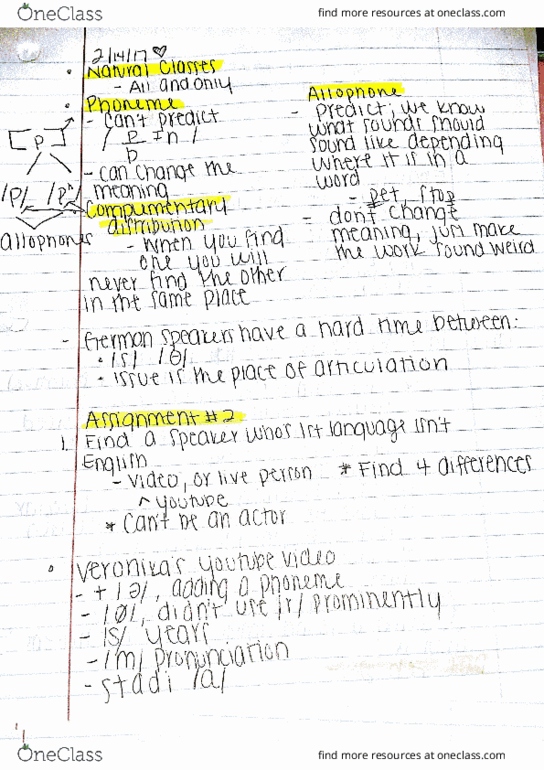 OneClass
find more resources at oneclass.com
2/14/17 ♡
• Natural Classes
- All and only
• Phoneme
- Can't predict
/ p In /
b
- can change the
meaning
[p]
/p/ /pʰ/
allophones
Complimentary
distribution
- When you find
one you will
never find the other
in the same place
Allophone
- Predict, we know
what sounds should
sound like depending
where it is in a
word
- pet, stop
- don't change
meaning, just make
the work sound weird
- German speakers have a hard time between:
• /s/ /θ/
• issue is the place of articulation
Assignment #2
1. Find a speaker who's 1st language isn't
English
- video, or live person * Find 4 differences
^ youtube
* Can't be an actor
• Veronika's youtube video
- + /ə/, adding a phoneme
- /ø/, didn't use /r/ prominently
- /s/ years
- /m/ pronunciation
- stadi /a/
OneClass
find more resources at oneclass.com